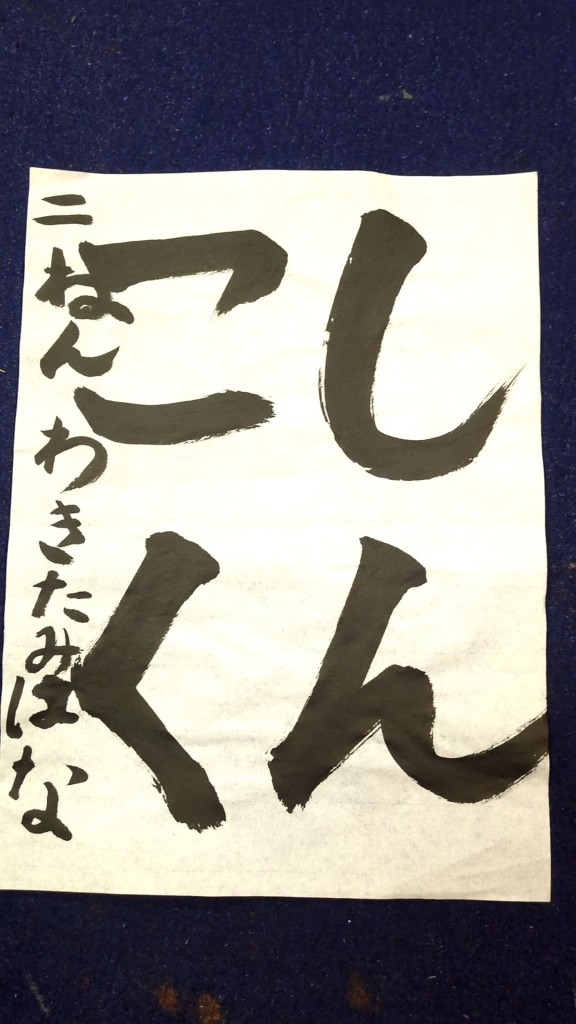 しん
こく
二ねんわきたみはな